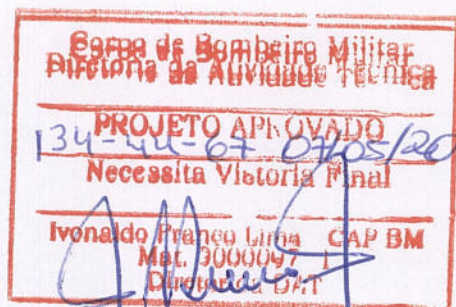 Corpo de Bombeiro Militar
Diretoria da Atividade Técnica
PROJETO APROVADO
134-44-67 07/05/20
Necessita Vistoria Final
Ivonaldo Franco Lima CAP BM
Mat.
Diretor da DAT